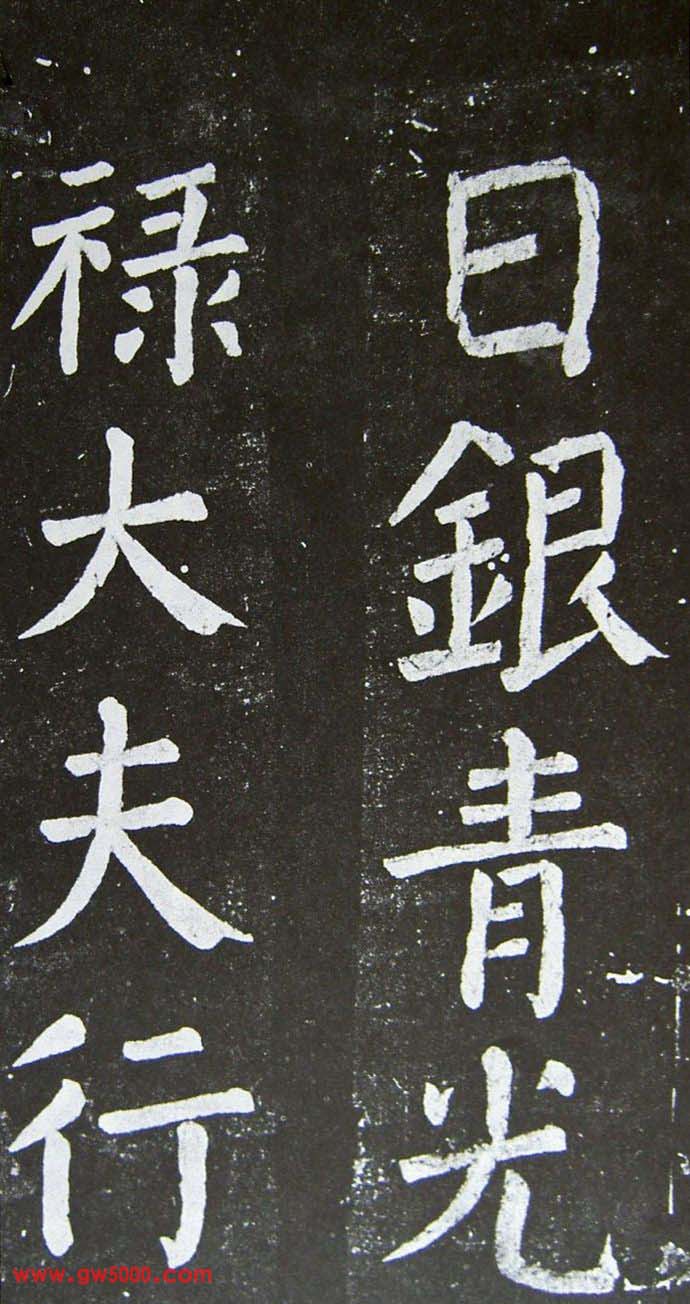 日銀青光
禄大夫行
www.gw5000.com